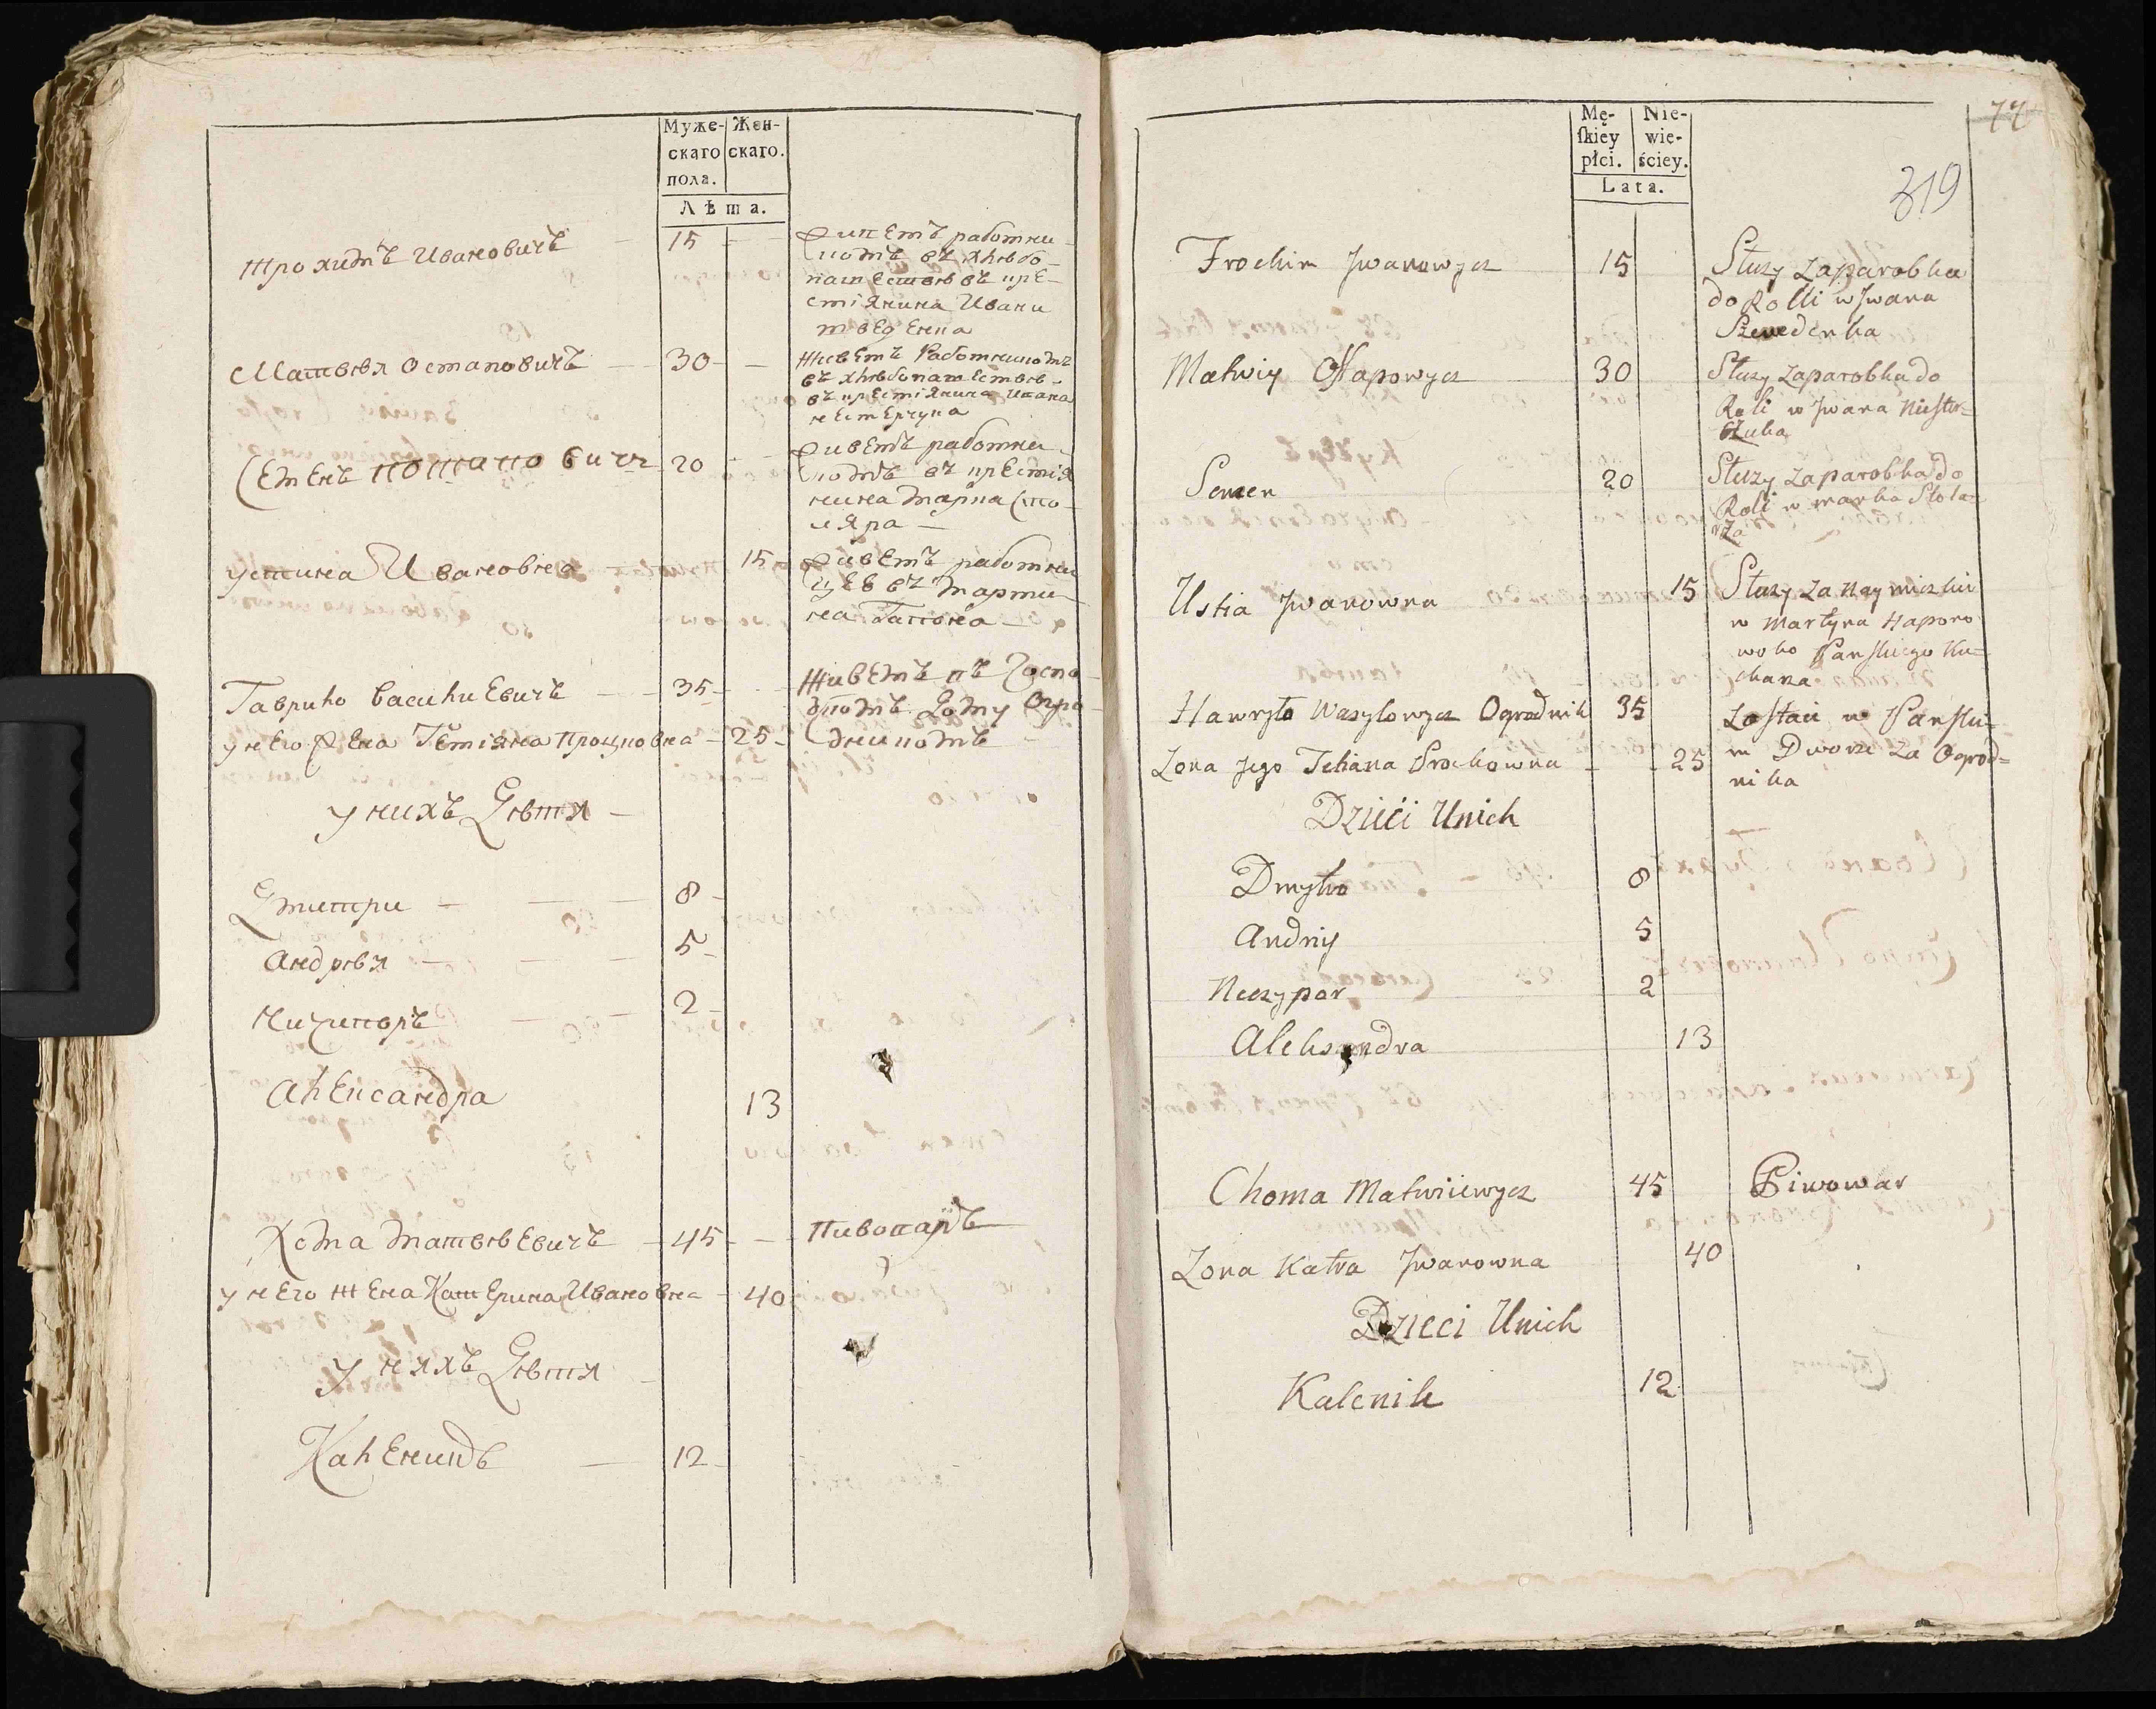 Муже-
скаго
пола.
Жен-
скаго.
Лѣта.
Трохимъ Ивановичъ 15 живетъ работни-
комъ въ хлѣбо-
пашествѣ въ кре-
стіянина Ивана
Матвѣя Остаповичъ 30 живетъ Работникомъ
въ хлѣбопашествѣ
въ крестіянина Ивана
нестерчука
Семенъ 20 живетъ работни-
комъ въ крестія
нина марка сто-
ляра
Устина Ивановна 15 живетъ работни
цев въ марти-
на Гапона
Гаврило Василиевичъ 35 живетъ въ Госпо-
дскомъ Дому Огро-
дникомъ
у него жена Тетіяна Процковна 25
у нихъ Дѣтя
Дмитри 8
Андрѣя 5
Ничипоръ 2
Александра 13
Хома Матвѣевичъ 45 Пивоваръ
у него жена Катерина Ивановна 40
у няхъ Дѣтя
Каленикъ 12
77
319
Mę-
skiey
płci.
Nie-
wie-
ściey.
Lata.
Trochim Jwanowycz 15 Służy za parobka
do Rolli w Jwana
Szwedenka
Matwiy Ostapowycz 30 Służy za parobka do
Roli w Jwana Niester-
czuka
Semen 20 Służy za parobka do
Roli w marka Stola-
rza
Ustia Jwanowna 15 Służy za Naymiczkie
w Martyna Hapono
woho Panskiego Ku-
chara
Hawryło Wasylowycz Ogrodnik 35 zostaie w Panski-
m Dworze za Ogrod-
nika
Zona Jego Tetiana Prockowna 25
Dzieci Unich
Dmytro 8
Andriy 5
Neczypor 2
Aleksandra 13
Choma Matwiiewycz 45 Piwowar
Zona Katra Jwanowna 40
Dzieci Unich
Kalenik 12